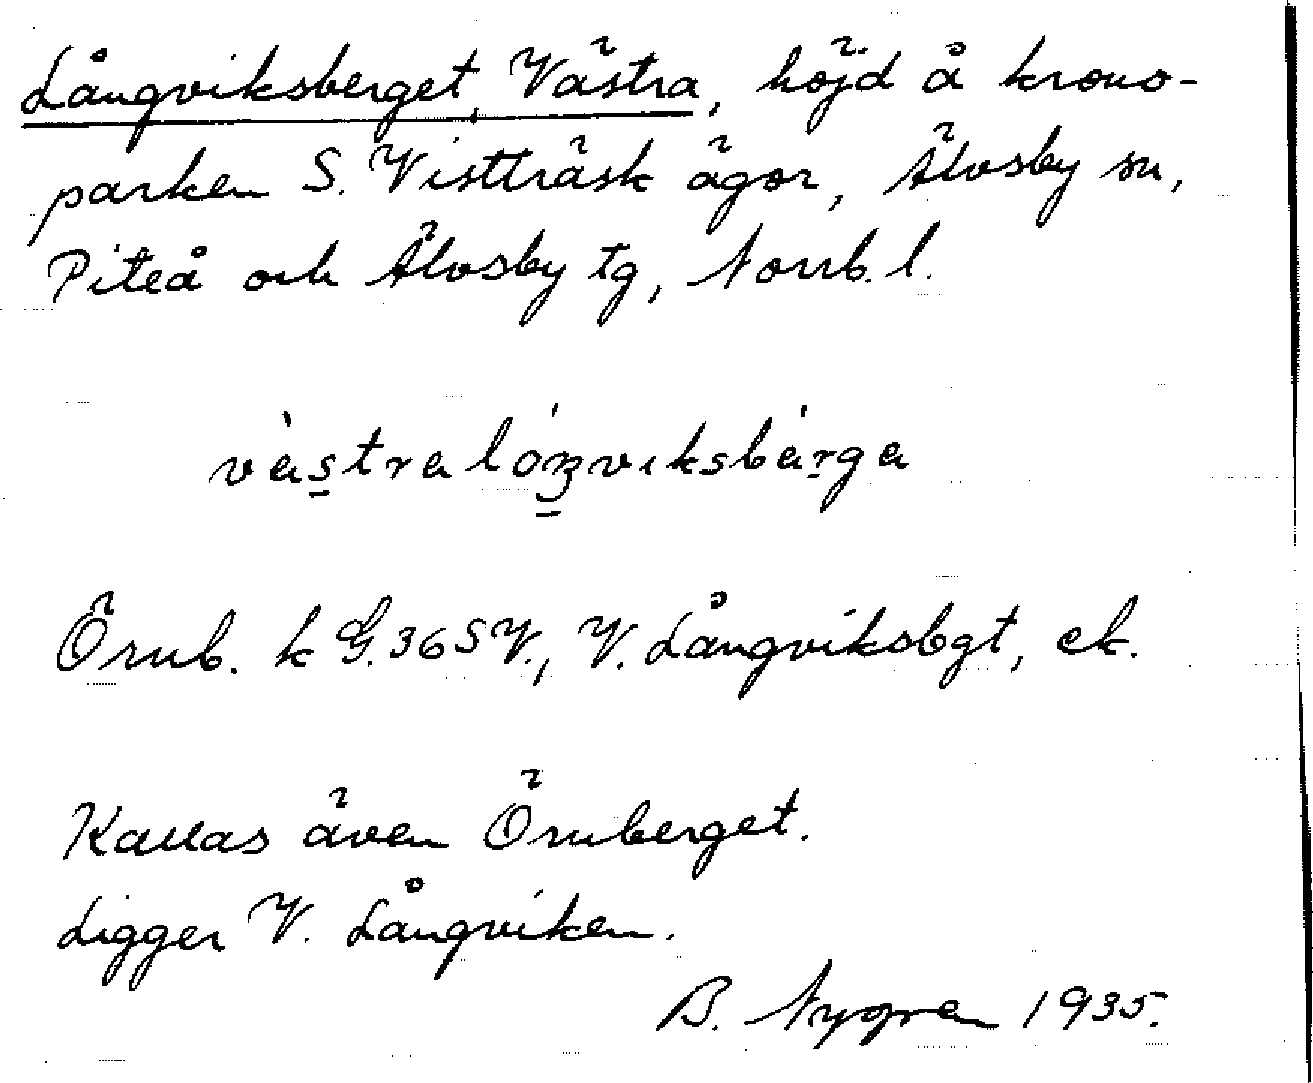 Långviksberget, Västra, höjd å krono-
parken S. Vistträsk ägor, Älvsby sn,
Piteå och Älvsby tg, Norrb. l.
västra lóŋviksbärga
Örnb. k G.36SV., V. Långviksbgt, ek.
Kallas även Örnberget.
Ligger V. Långviken.
B. Nygren 1935.